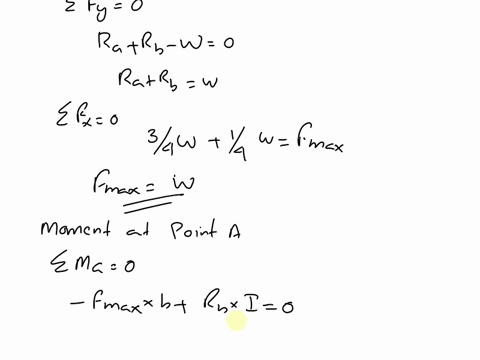 Σ Fy = 0
Ra + Rb - W = 0
Ra + Rb = w
Σ Fx = 0
3/4 W + 1/4 w = Fmax
Fmax = w
Moment at Point A
Σ Ma = 0
- Fmax × b + Rb × I = 0